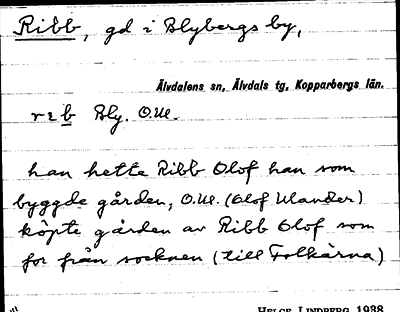 Ribb, gd i Blybergs by,
Älvdalens sn, Älvdals tg, Kopparbergs län.
Bly. O.W.
han hette Ribb Olof han som
byggde gården, O.W. (Olof Wlander)
köpte gården av Ribb Olof som
for från socknen (till Folkärna)
HELGE LINDBERG 1938